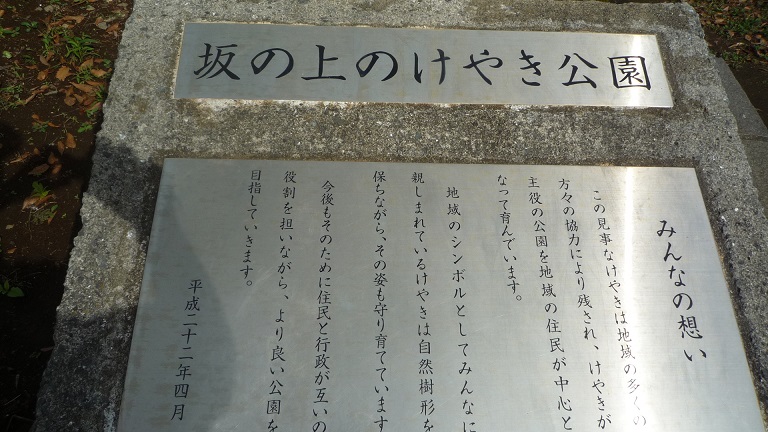 坂の上のけやき公園
みんなの想い
この見事なけやきは地域の多くの
方々の協力により残され、けやきが
主役の公園を地域の住民が中心と
なって育んでいます。
地域のシンボルとしてみんなに
親しまれているけやきは自然樹形を
保ちながら、その姿も守り育てています
今後もそのために住民と行政が互いの
役割を担いながら、より良い公園を
目指していきます。
平成二十二年四月